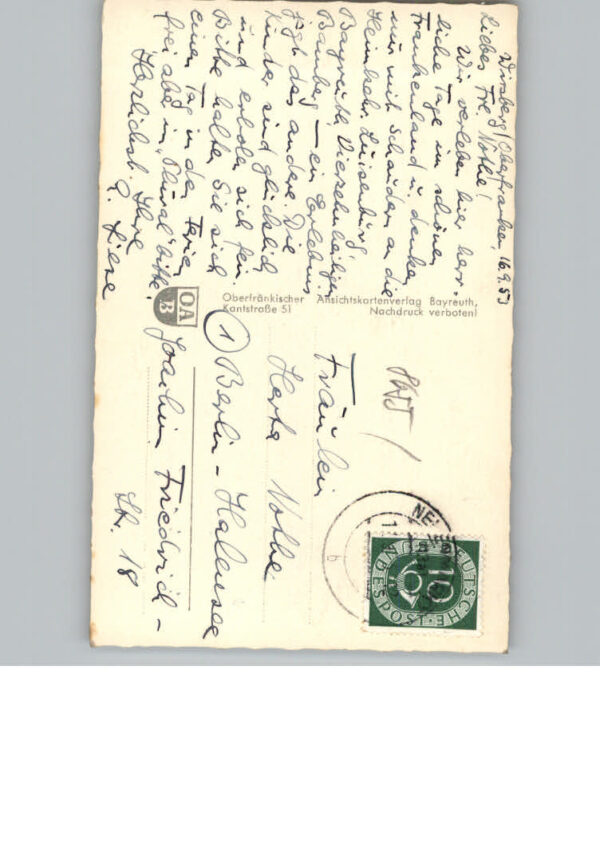 Wirsberg/Oberfranken 16.9.53
Liebes Frl. Nothe!
Wir verleben hier herr-
liche Tage im schönen
Frankenland u. denken
nur mit Schaudern an die
Heimkehr. Luisenburg,
Bayreuth, Vierzehnheiligen
Bamberg — ein Erlebnis
jagt das andere. Die
Kinder sind glücklich
und erholen sich fein.
Bitte halten Sie sich
einen Tag in den Ferien
frei aber im "Plural" bitte!
Herzlichst Ihre
Liese
OA
B
Oberfränkischer Ansichtskartenverlag Bayreuth,
Kantstraße 51 Nachdruck verboten!
Fräulein
Herta Nothe
1 Berlin-Halensee
Joachim Friedrich-
Str. 18
DEUTSCHE
BUNDESPOST
10